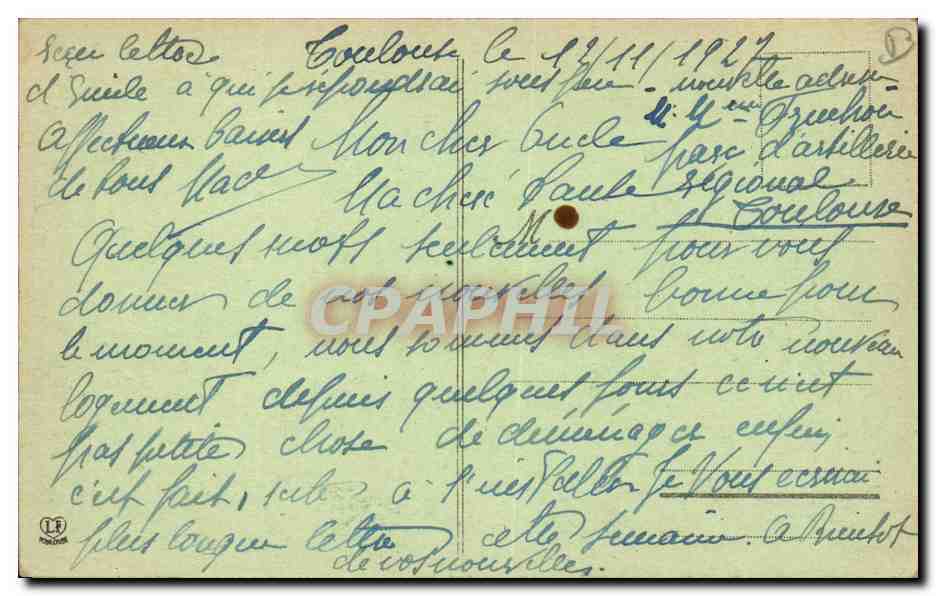 Toulouse le 12/11/1927
Reçu lettre
d'Emile à qui je répondrai sous peu - nouvelle adresse
M. Mme
Affectueux baisers
parc d'artillerie
de tous
régional
Toulouse
Mon cher Oncle
Ma chère Tante
M
Quelques mots seulement pour vous
donner de nos nouvelles bonne pour
le moment, nous sommes dans notre nouveau
logement depuis quelques jours ce n'est
pas petite chose de déménager enfin
c'est fait, reste à l'installer Je vous ecrirai
plus longue lettre cette semaine. A Bientot
de vos nouvelles.
CPAPHIL
LF
TOULOUSE